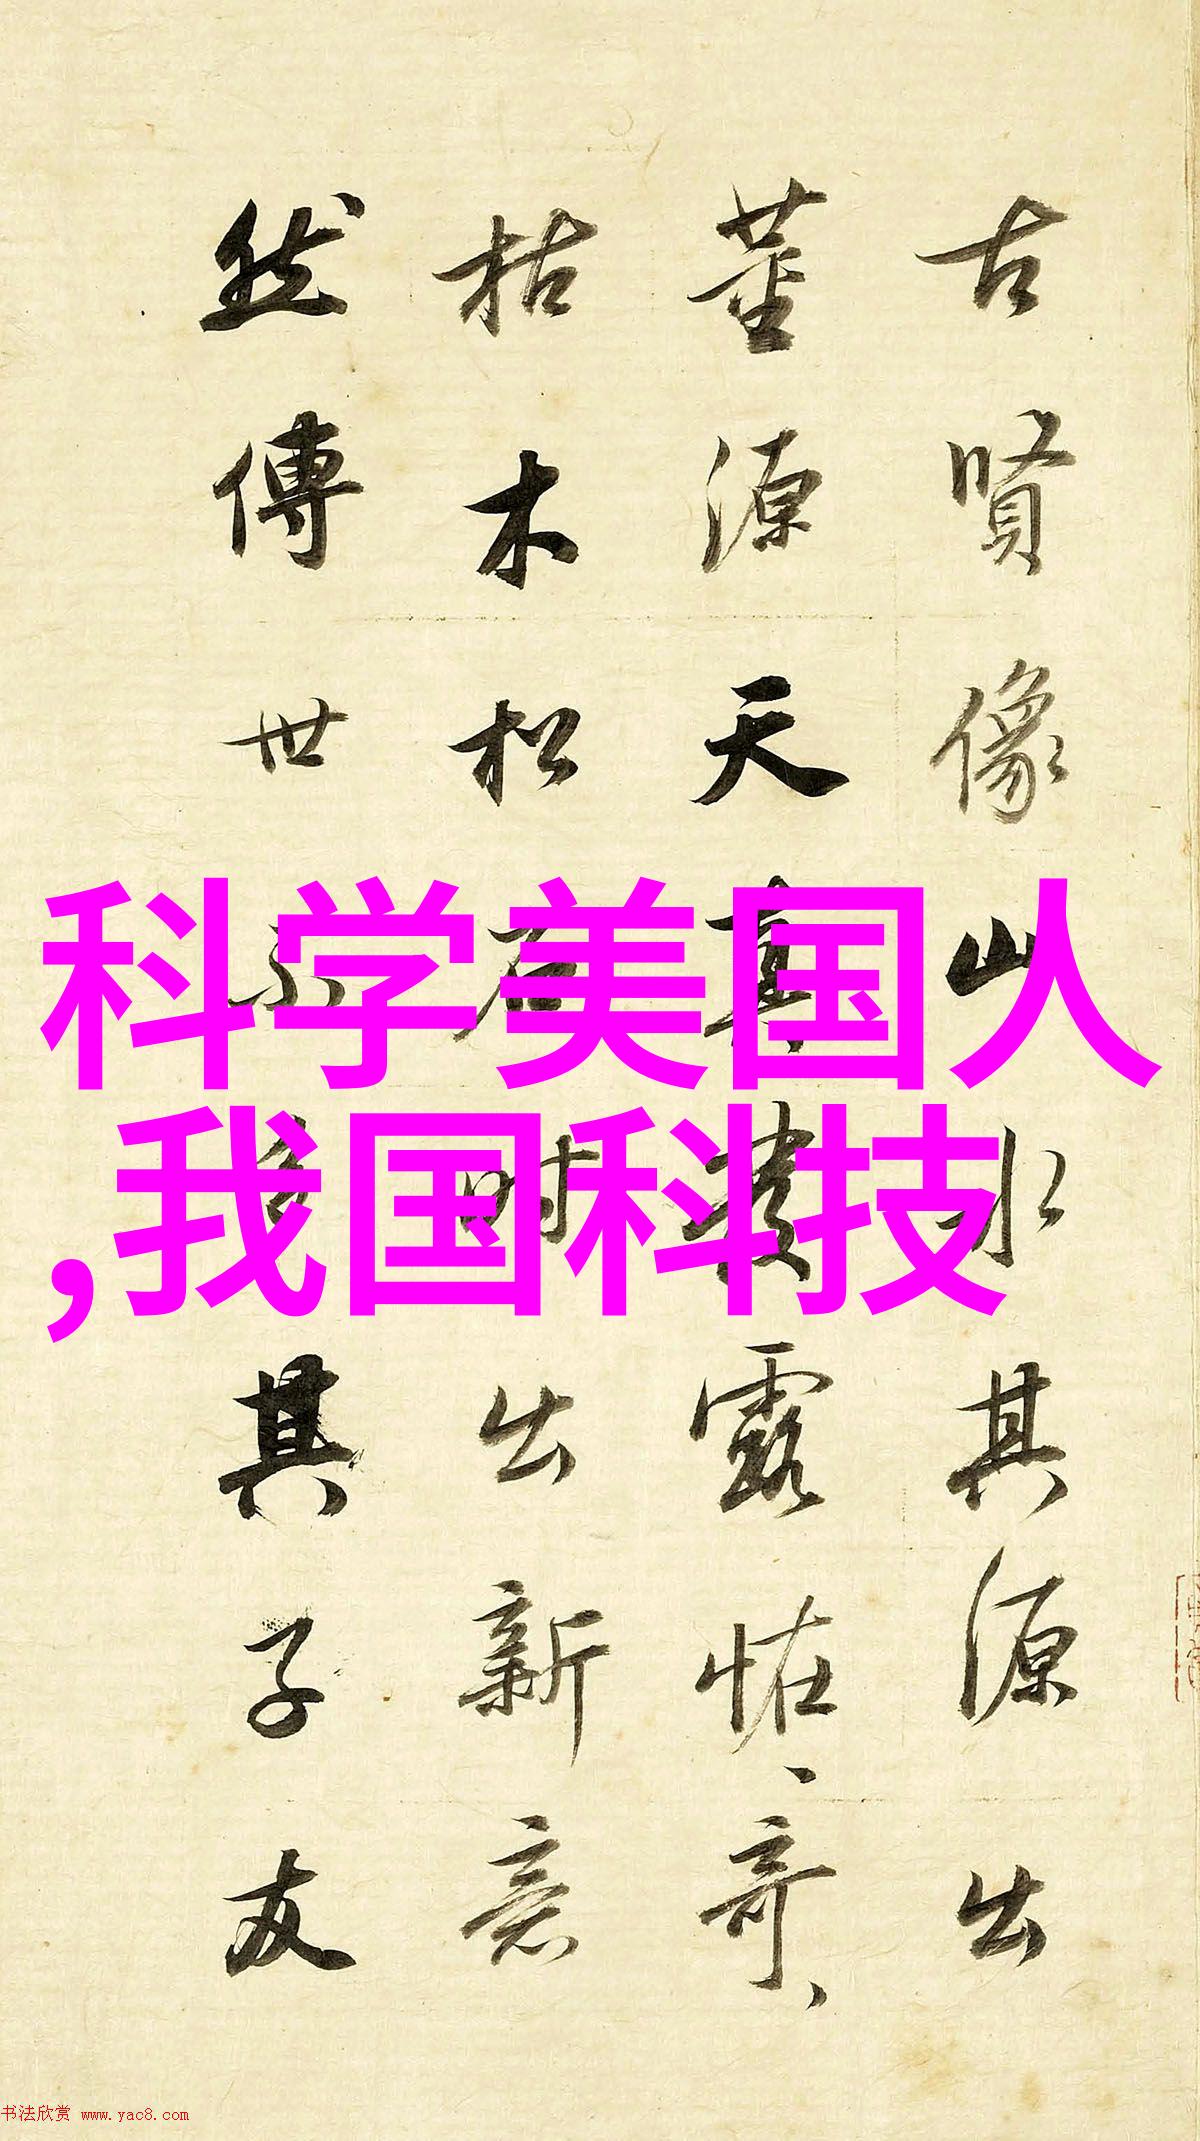 古賢像山水其源出
董源天真發露怪奇
枯木松石時出新意
然傳世不多其子友
科学美国人
,我国科技
书法欣赏 www.yac8.com